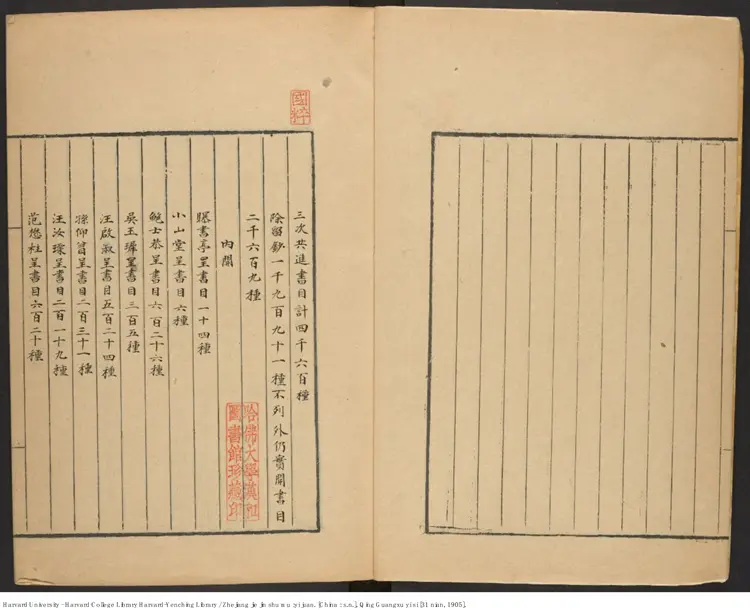 三次共進書目計四千六百種
除留鈔一千九百九十一種不列外仍實開書目
二千六百九種
內開
曝書亭呈書目一十四種
小山堂呈書目六種
鮑士恭呈書目六百二十六種
吳玉墀呈書目三百五種
汪啟淑呈書目五百二十四種
孫仰曾呈書目二百三十一種
汪汝瑮呈書目二百一十九種
范懋柱呈書目六百二十種
國粹
哈佛大學漢和
圖書館珍藏印
Harvard University - Harvard College Library Harvard-Yenching Library / Zhejiang jin jin shu mu : yi juan. [China : s.n.], Qing Guangxu yisi [31 nian, 1905].